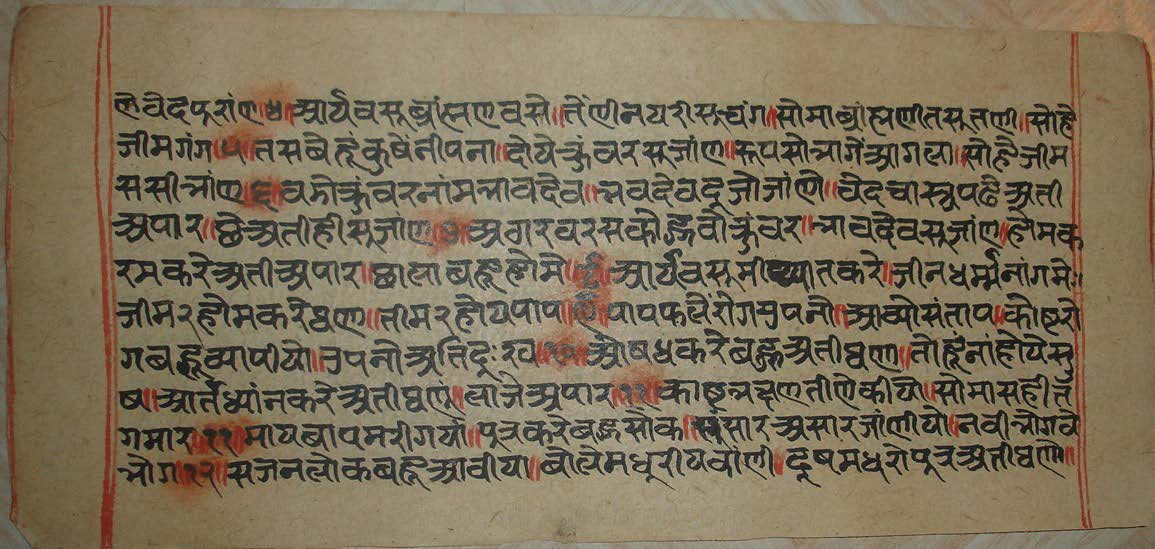 लैवेदपुरांण॥४॥आर्यवसूब्रांह्मणवसे॥तेंणीनयरीसूचंग॥सोमाब्रांह्मणीतसूतणी॥सोहै
जीमगंग॥५॥तसबैहूकुषेंनीपना॥दोयेकुंवरसूजांण॥रूपसोभागेंआगला॥सोहैजीम
ससीभांण॥६॥वडोकुंवरनांमभावदैव॥भवदेवदूजोजांणे॥वेदचास्त्रपढैअती
अपार॥छैअतीहीसूजांण॥७॥अगरवरसकौहूवौकुंवर॥भावदैवसूजांण॥हौमक
रमकरेअतीअपार॥छालाबहूहोमै॥८॥आर्यवसूमीथ्यातकरे॥जीनधर्म्मनांगमे॥
जीमरहौमकरेघण॥तीमरहौयपापा॥९॥पापफलैंरोगउपनौ॥आव्योसंताप॥कौष्टरो
गबहूव्यापीयो॥उपनोअतिदूःख॥१०॥औषधकरेबहूअतीघण॥तौहूंनांहोयेसु
ष॥आर्तध्यांनकरेअतीघणं॥लाजेअपार॥११॥काष्टभक्षणतीणेकीयो॥सोमासहीत
गमार॥१२॥मायबापमरीगयां॥पुत्रकरेबहूसोक॥संसारअसारजांणीयो॥नवीभोगवे
भोग॥१३॥सजनलोकबहूआवीया॥बोलेमधूरीयवांणी॥दूषमधरोपुत्रअतीघणो॥